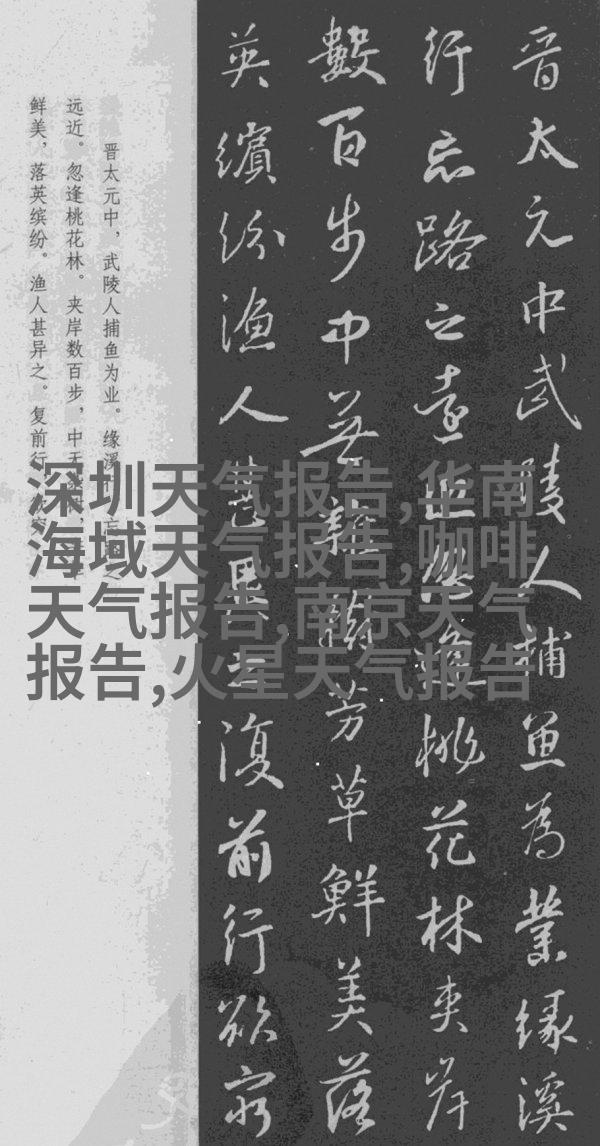 晋太元中武陵人捕魚為業緣溪
行忘路之遠近忽逢桃花林夾岸
數百步中無雜樹芳草鮮美落
英繽紛漁人甚異之復前行欲窮
晋太元中，武陵人捕鱼为业。缘溪行，忘路之
远近。忽逢桃花林。夹岸数百步，中无
鲜美，落英缤纷。渔人甚异之。复前行
深圳天气报告,华南
海域天气报告,咖啡
天气报告,南京天气
报告,火星天气报告